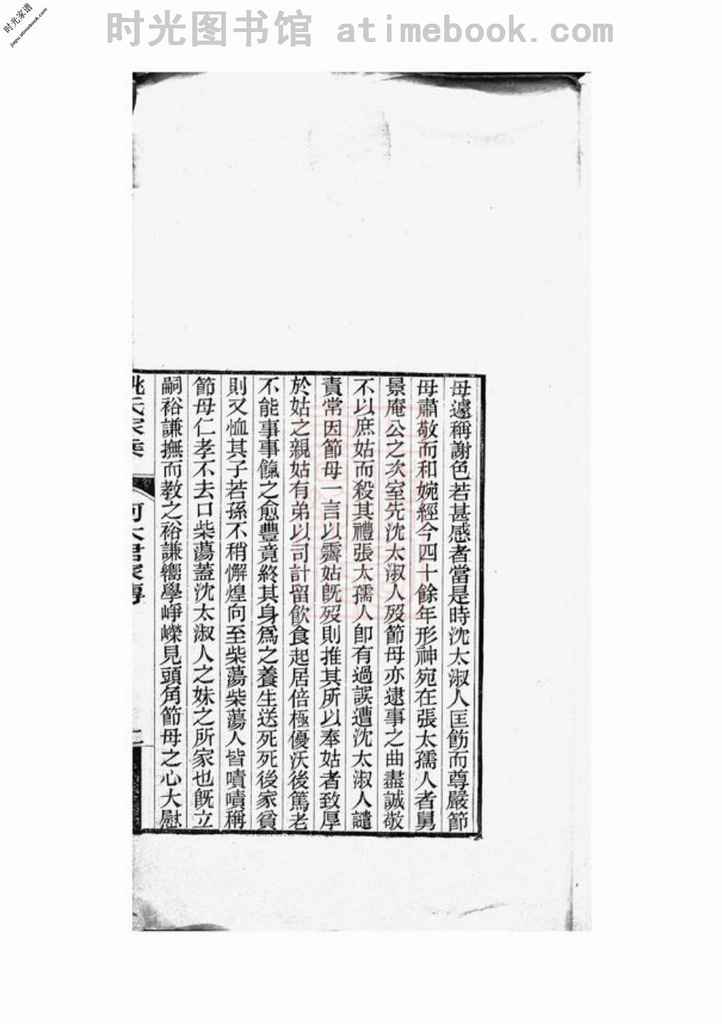 时光家谱
jiapu.atimebook.com
时光图书馆 atimebook.com
母遽稱謝色若甚感者當是時沈太淑人匡飭而尊嚴節
母肅敬而和婉經今四十餘年形神宛在張太孺人者舅
景庵公之次室先沈太淑人歿節母亦逮事之曲盡誠敬
不以庶姑而殺其禮張太孺人卽有過誤遭沈太淑人譴
責常因節母一言以霽姑旣歿則推其所以奉姑者致厚
於姑之親姑有弟以司計留飲食起居倍極優沃後篤老
不能事事餼之愈豐竟終其身爲之養生送死死後家貧
則又恤其子若孫不稍懈煌向至柴蕩柴蕩人皆嘖嘖稱
節母仁孝不去口柴蕩蓋沈太淑人之妹之所家也旣立
嗣裕謙撫而教之裕謙嚮學崢嶸見頭角節母之心大慰
姚氏家乘 何太君家傳 二